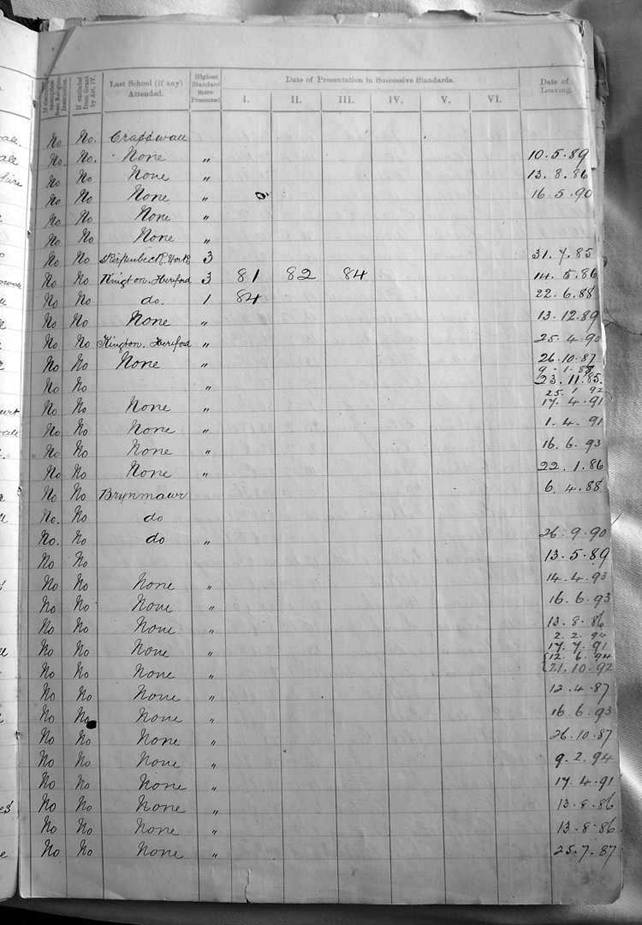 Last School (if any) Attended. Highest Standard there Presented Date of Presentation in Successive Standards. Date of Leaving.
I. II. III. IV. V. VI.
No No. Crasswall
No No. None " 10.5.89
No No None " 13.8.86
No No None " 16.5.90
No No None "
No No None "
No No 3 31.7.85
No No Kington. Hereford 3 81 82 84 14.5.86
No No do. 1 84 22.6.88
No No None " 13.12.89
No No Kington. Hereford " 25.4.90
No No None " 26.10.87
9.1.88
No No " 23.11.85.
25.1.92
No No None " 17.4.91
No No None " 1.4.91
No No None " 16.6.93
No No None " 22.1.86
No No Brynmawr 6.4.88
No. No do
No. No do " 26.9.90
No No 13.5.89
No No None " 14.4.93
No No None " 16.6.93
No No None " 13.8.86
2.2.94
No No None " 17.7.91
12.6.94
No No None " 21.10.92
No No None " 12.4.87
No No None " 16.6.93
No No None " 26.10.87
No No None " 9.2.94
No No None " 17.4.91
No No None " 13.8.86
No No None " 13.8.86
No No None " 25.7.87